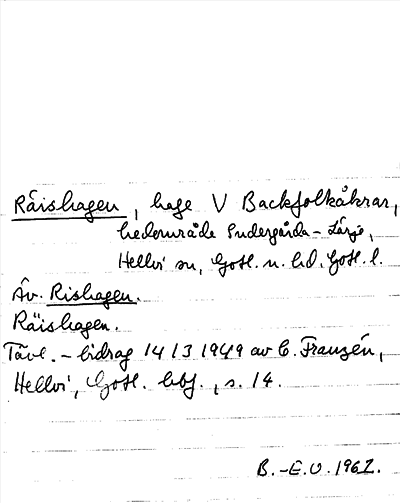 Räishagen, hage V Backfolkåkrar,
hedområde Sudergårda - Lärje,
Hellvi sn, Gotl. n. hd. Gotl. l.
Äv. Rishagen.
Räishagen.
Tävl. - bidrag 14/3 1949 av C. Franzén,
Hellvi, Gotl. bbf., s. 14.
B.-E.O. 1962.